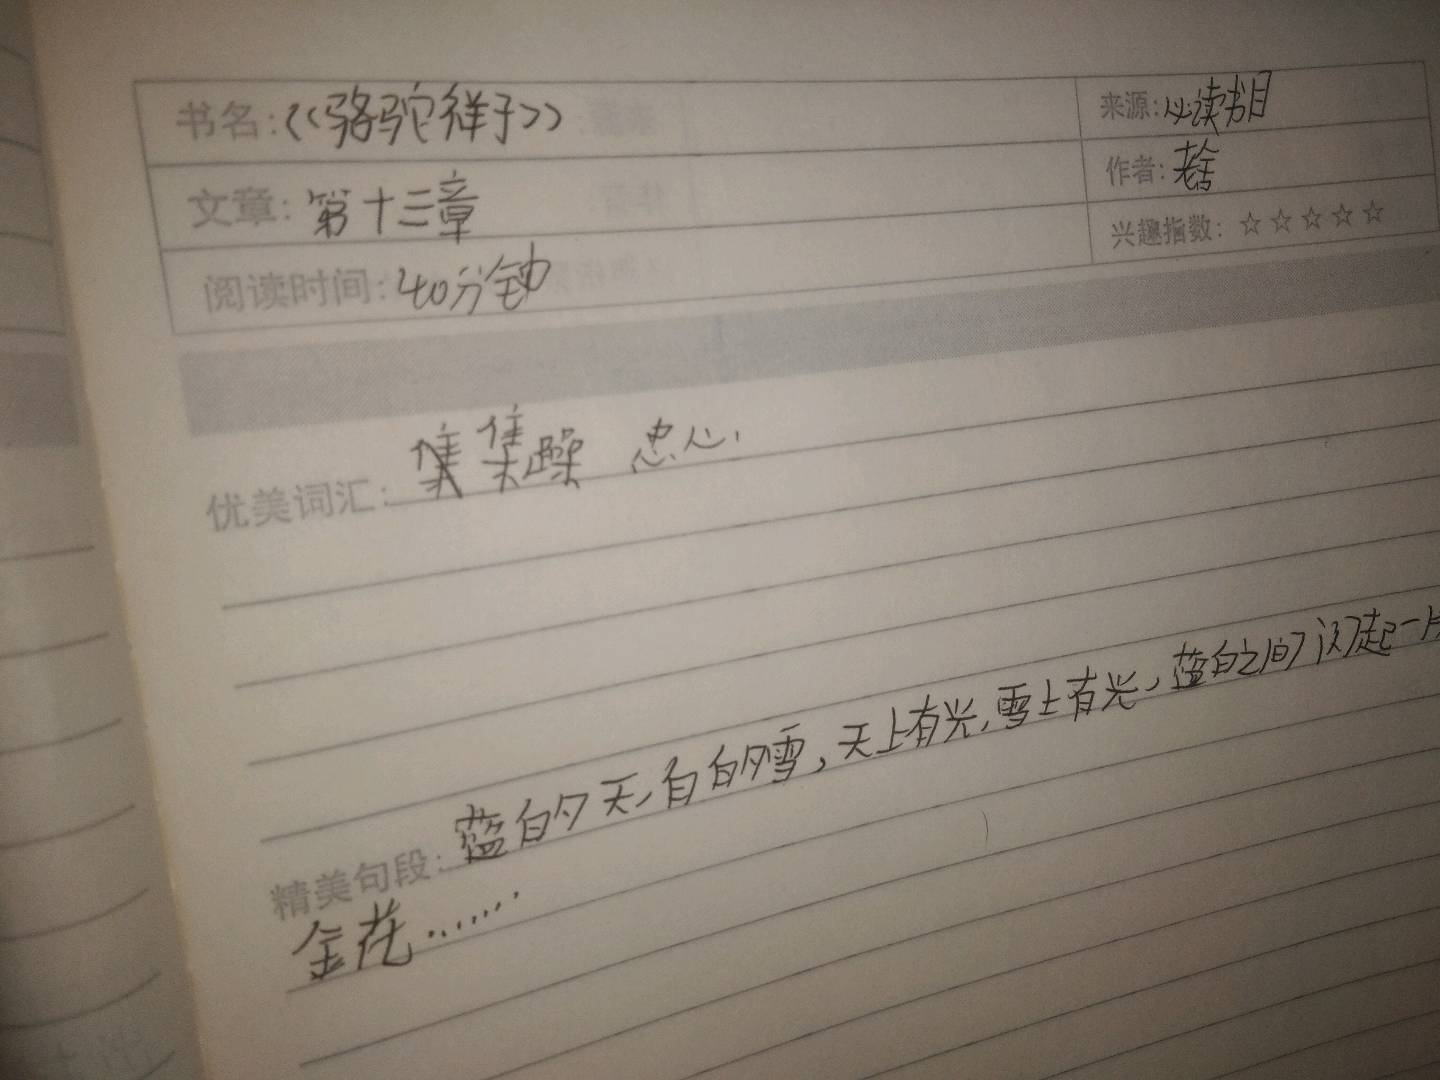 书名:《骆驼祥子》
来源:必读书目
文章:第十三章
作者:老舍
阅读时间:40分钟
兴趣指数:☆☆☆☆☆
优美词汇: 忠心
精美句段:蓝白的天,白的雪,天上有光,雪上有光,蓝白之间闪起一片
金花.......